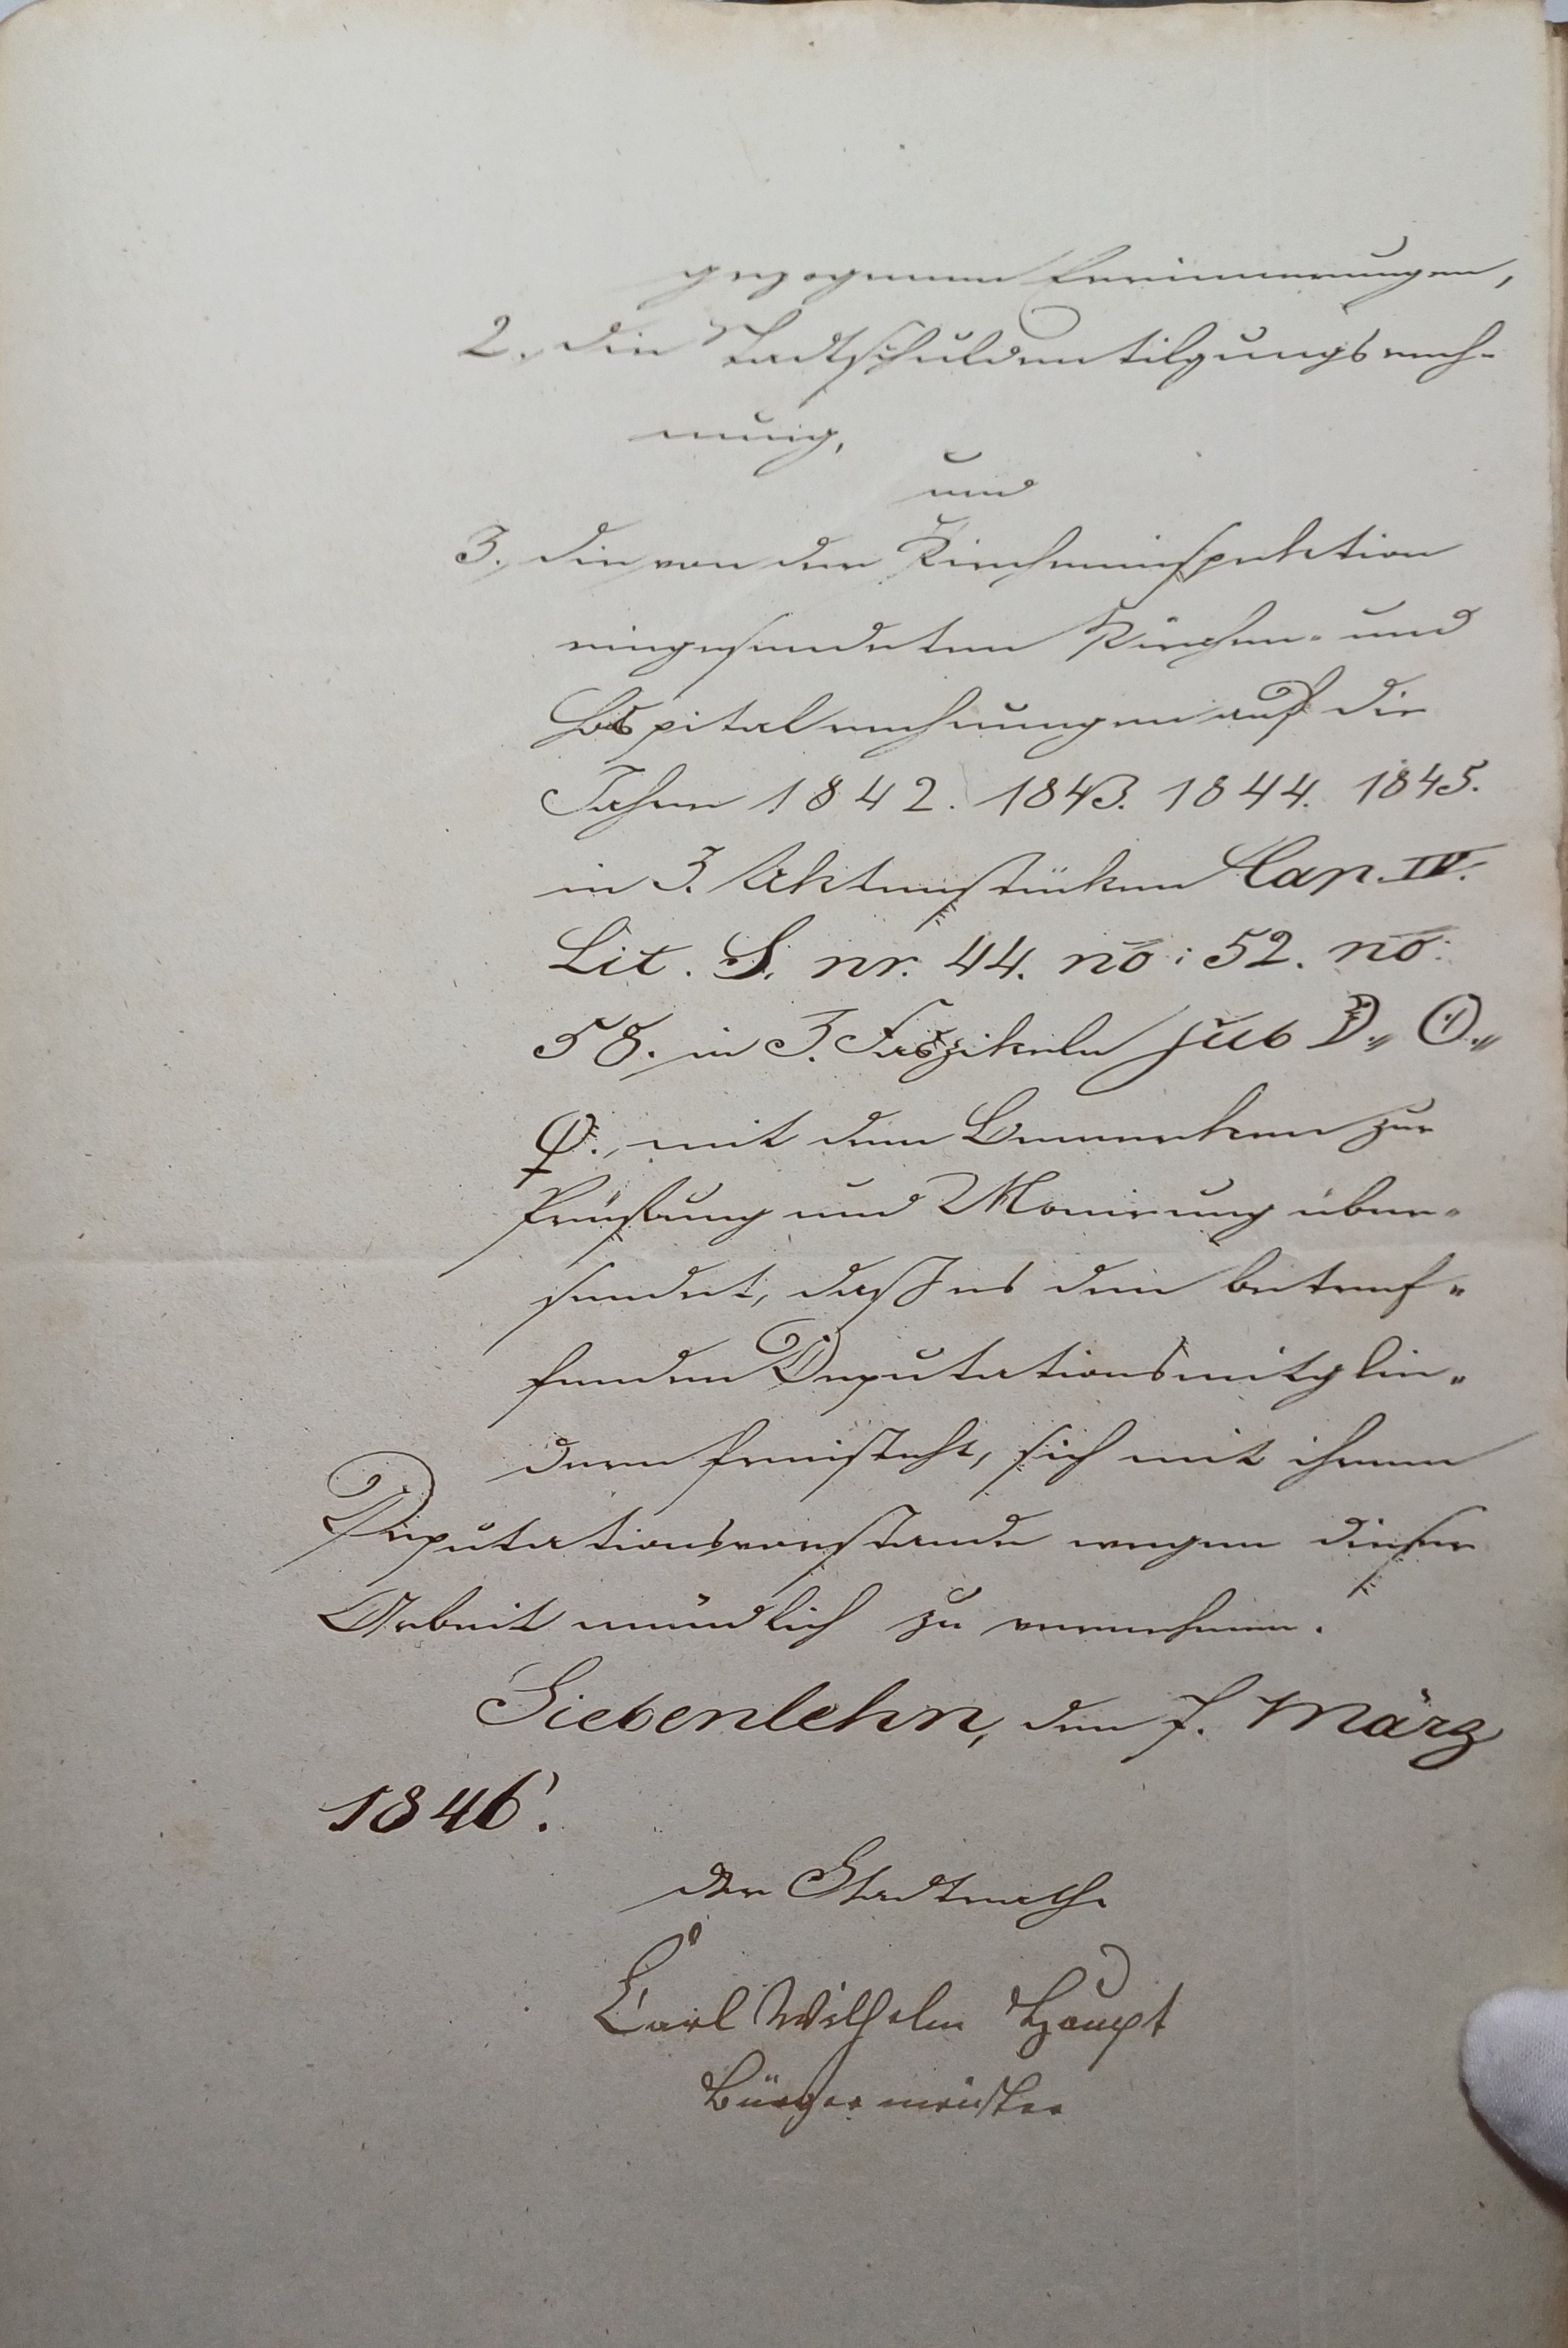 gezogenen Erinnerungen,
2., die Stadtschuldentilgungsrech-
nung,
und
3., die von der Kircheninspektion
eingesendeten Kirchen- und
Hospitalrechnungen auf die
Jahre 1842. 1843. 1844. 1845.
in 3. Aktenstüken Cap. IV.
Lit. S. nr. 44. no: 52. no:
58. in 3. Faszikeln sub D., O.,
Q., mit dem Bemerken zur
Prüfung und Monirung über-
sendet, daß es den betref-
fenden Deputationsmitglie-
dern freisteht, sich mit ihrem
Deputationsvorstande wegen dieser
Arbeit mündlich zu vernehmen.
Siebenlehn, den 7. März
1846.
Der Stadtrath
Carl Wilhelm Haupt
Bürgermeister